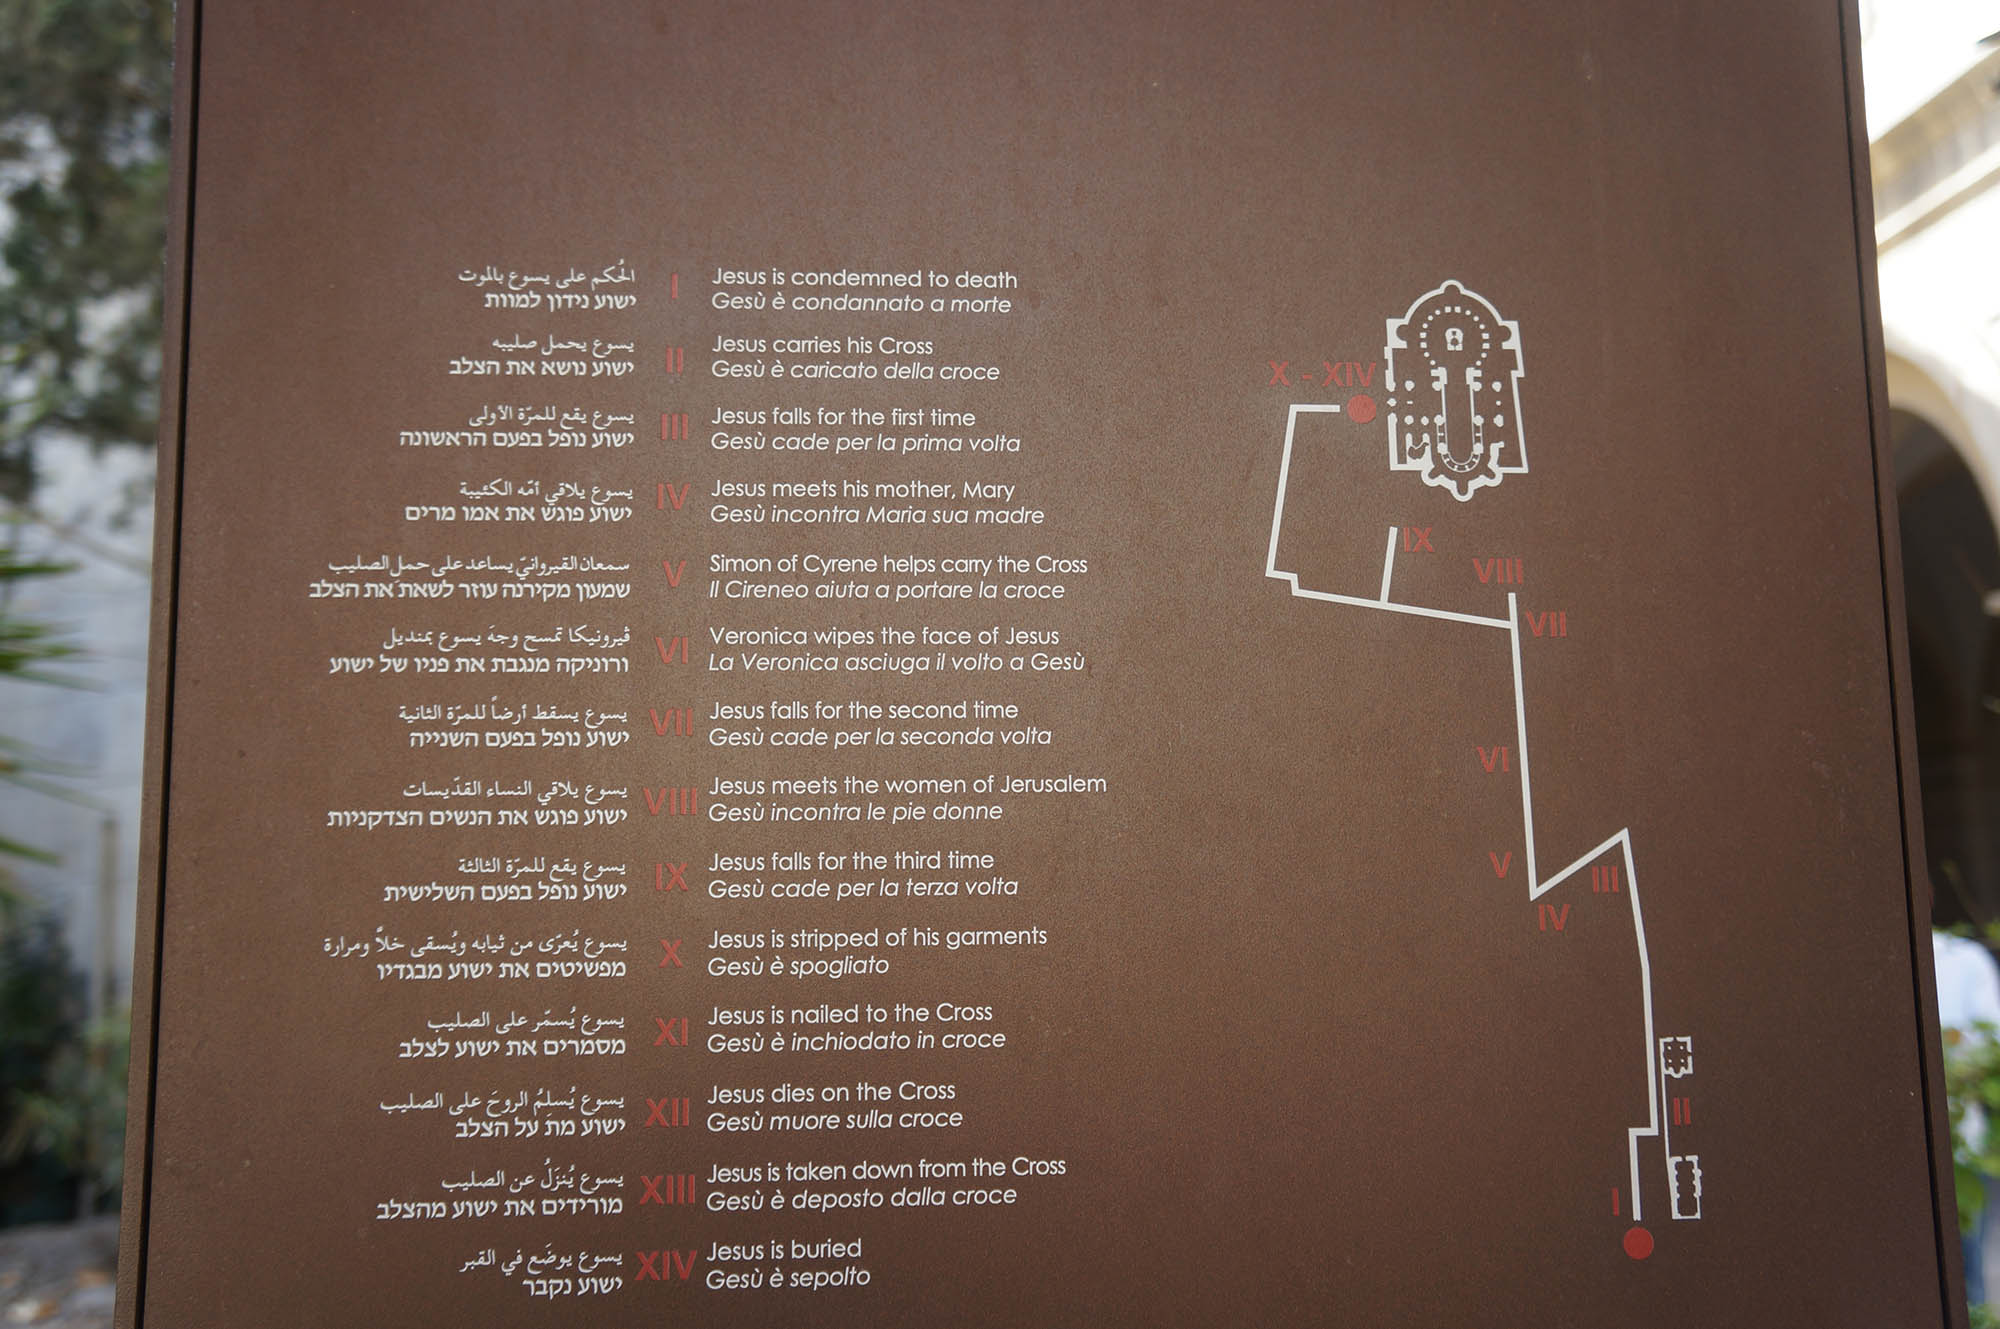 الحُكم على يسوع بالموت
ישוע נידון למוות
I
Jesus is condemned to death
Gesù è condannato a morte
يسوع يحمل صليبه
ישוע נושא את הצלב
II
Jesus carries his Cross
Gesù è caricato della croce
يسوع يقع للمرّة الأولى
ישוע נופל בפעם הראשונה
III
Jesus falls for the first time
Gesù cade per la prima volta
يسوع يلاقي أمّه الكئيبة
ישוע פוגש את אמו מרים
IV
Jesus meets his mother, Mary
Gesù incontra Maria sua madre
سمعان القيروانيّ يساعد على حمل الصليب
שמעון מקירנה עוזר לשאת את הצלב
V
Simon of Cyrene helps carry the Cross
Il Cireneo aiuta a portare la croce
ڤيرونيكا تمسح وجهَ يسوع بمنديل
ורוניקה מנגבת את פניו של ישוע
VI
Veronica wipes the face of Jesus
La Veronica asciuga il volto a Gesù
يسوع يسقط أرضاً للمرّة الثانية
ישוע נופל בפעם השנייה
VII
Jesus falls for the second time
Gesù cade per la seconda volta
يسوع يلاقي النساء القدّيسات
ישוע פוגש את הנשים הצדקניות
VIII
Jesus meets the women of Jerusalem
Gesù incontra le pie donne
يسوع يقع للمرّة الثالثة
ישוע נופל בפעם השלישית
IX
Jesus falls for the third time
Gesù cade per la terza volta
يسوع يُعرّى من ثيابه ويُسقى خلاًّ ومرارة
מפשיטים את ישוע מבגדיו
X
Jesus is stripped of his garments
Gesù è spogliato
يسوع يُسمّر على الصليب
מסמרים את ישוע לצלב
XI
Jesus is nailed to the Cross
Gesù è inchiodato in croce
يسوع يُسلمُ الروحَ على الصليب
ישוע מת על הצלב
XII
Jesus dies on the Cross
Gesù muore sulla croce
يسوع يُنزَلُ عن الصليب
מורידים את ישוע מהצלב
XIII
Jesus is taken down from the Cross
Gesù è deposto dalla croce
يسوع يوضَع في القبر
ישוע נקבר
XIV
Jesus is buried
Gesù è sepolto
X - XIV
IX
VIII
VII
VI
V
III
IV
II
I